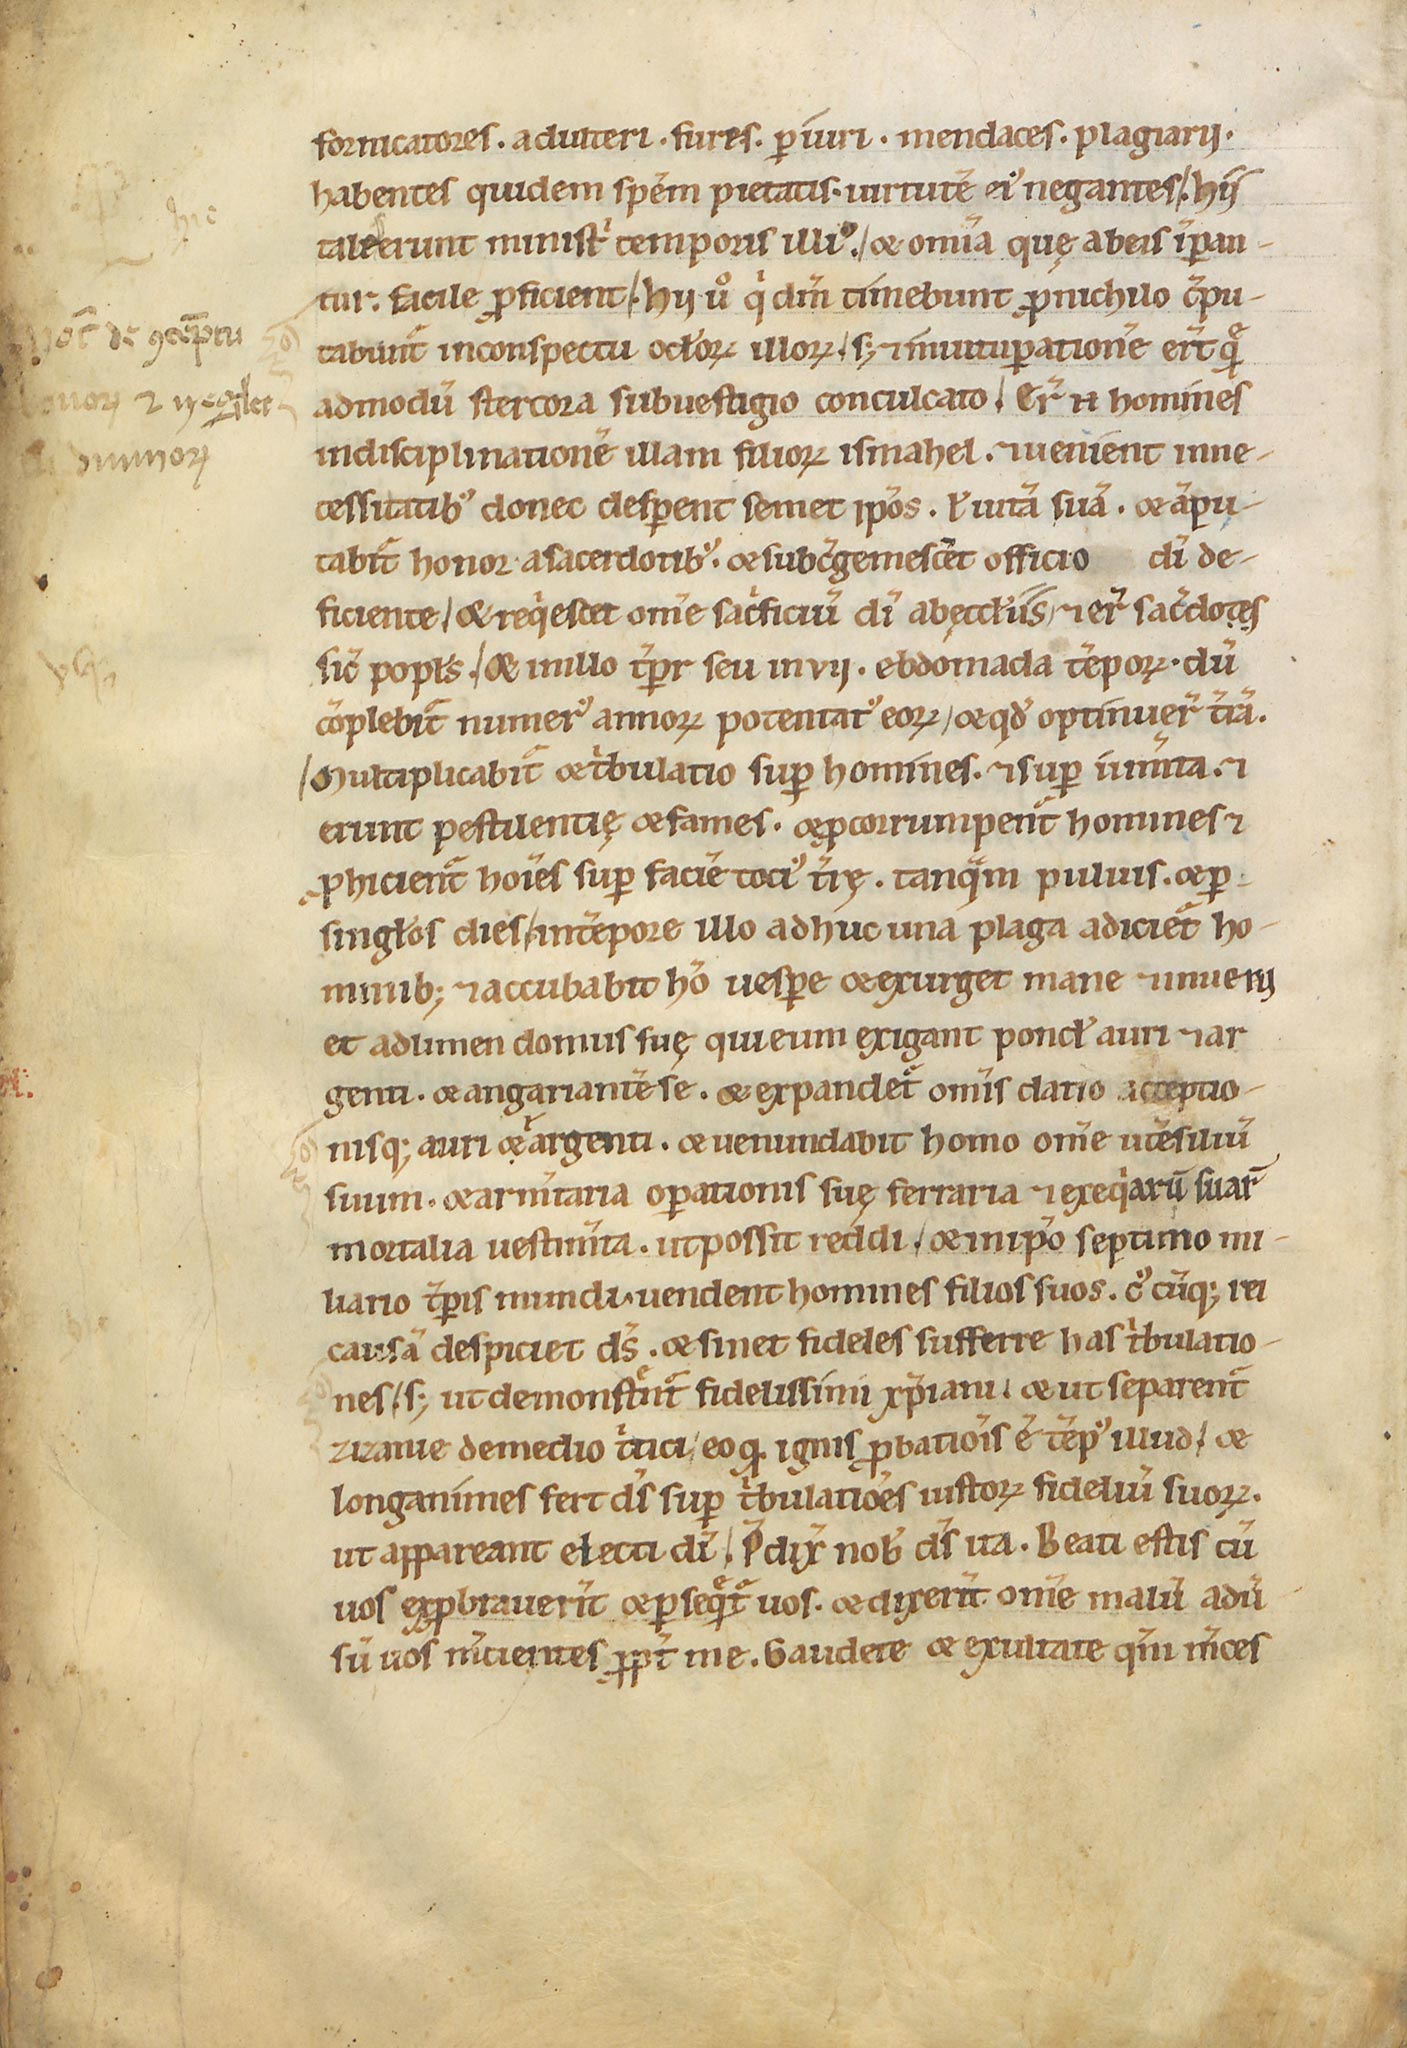 fornicatores. adulteri. fures. p̱iuri. mendaces. plagiarii.
habentes quidem spēm pietatis. uirtutē eiꝰ negantes/. hij
tales erunt ministͥ temporis illiꝰ./ & omīa quę abeis īꝑan-
tur. facile ꝓficient/. hij ů qͥ dm̄ timebunt ꝓnichilo c̄pu-
tabunt̄ inconspectu oclōꝝ illoꝝ./ s; ⁊ inuituꝑationē er̄t quē
admodū stercora subuestigio conculcato/. Er̄ ⁊ homines
indisciplinationē illam filioꝝ ismahel. ⁊ uenient inne-
cessitatibꝰ donec desꝑent semet ipōs. ł uitā suā. & āpu-
tabit̄ honor asacerdotibꝰ. & subc̄gemescet̄ officio dī de-
ficiente/. & reqͥescet om̄e sac̄ficiū dī abęcclīis/ ⁊ er̄ sac̄dotes
sic̄ popłs./ & inillo tp̄r seu in vii. ebdomada tēpoꝝ. dū
cōplebit̄ numerꝰ annoꝝ potentatꝰ eoꝝ/ & qd̄ optinuer̄ tr̄ā.
/Multiplicabit̄ & tͥbulatio suꝑ homines. ⁊ suꝑ ium̄ta. ⁊
erunt pestilentię & fames. & ꝑcorrumpent̄ homines ⁊
ꝓhicient̄ hoīes suꝑ faciē tociꝰ tr̄ę. tanqͣm puluis. & ꝑ
singłos dies/ intēpore illo adhuc una plaga adiciet̄ ho-
minib; ⁊ accubabit hō uesꝑe & exurget mane ⁊ inueni
et adlimen domus suę qui eum exigant pondł auri ⁊ ar
genti. & angariantē se. & expandet̄ om̄is datio acceptio-
nisq; auri & argenti. & uenundabit homo om̄e utēsiliū
suum. & arm̄taria oꝑationis suę ferraria ⁊ exeqͥarū suar̄
mortalia uestim̄ta. ut possit reddi./ & inipō septimo mi-
liario tp̄ris mundi. uendent homines filios suos. cꝰ cūq; rei
causā despiciet ds̄. & sinet fideles sufferre has tͥbulatio-
nes/. s; ut demonstͬnt̄ fidelissimi xp̄iani. & ut separent̄
zizanie demedio tͥtici/ eo qͥ ignis ꝓbatiōis ē tēpꝰ illud/. &
longanimes fert ds̄ suꝑ tͥbulatiōes iustoꝝ fideliū suoꝝ.
ut appareant electi dī/. P̄dix̄ nob̄ ds̄ ita. Beati estis cū
uos exꝓbrauerīt & ꝑseqͣt̄ uos. & dixerīt om̄e malū adū
sū uos m̄cientes ꝓpt̄ me. Gaudete & exultate qm̄ m̄ces
hic
Not̄ de ꝯtēptu
⁊ neglec